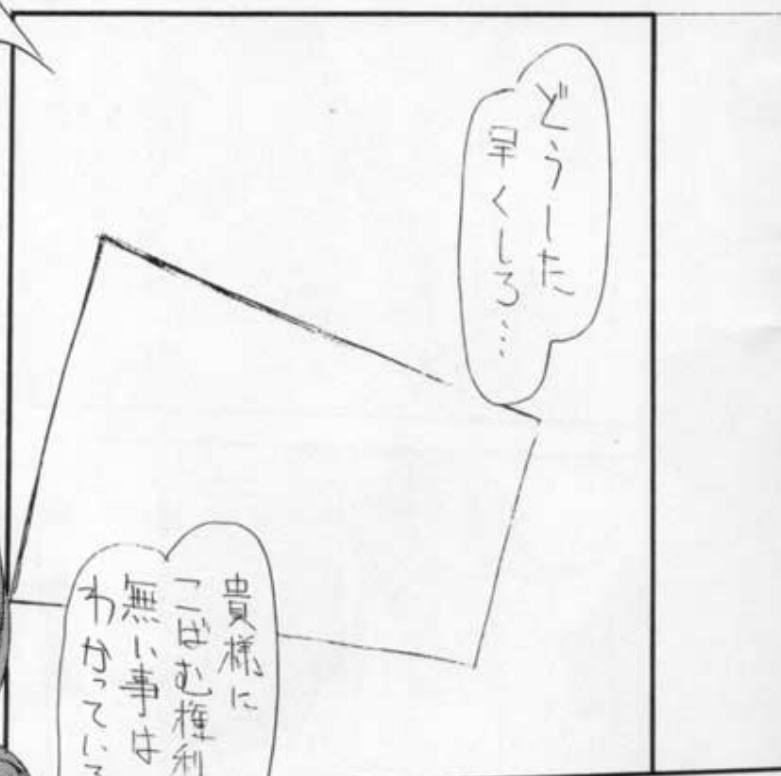 どうした
早くしろ…
貴様に
こばむ権利
無い事は
わかっている